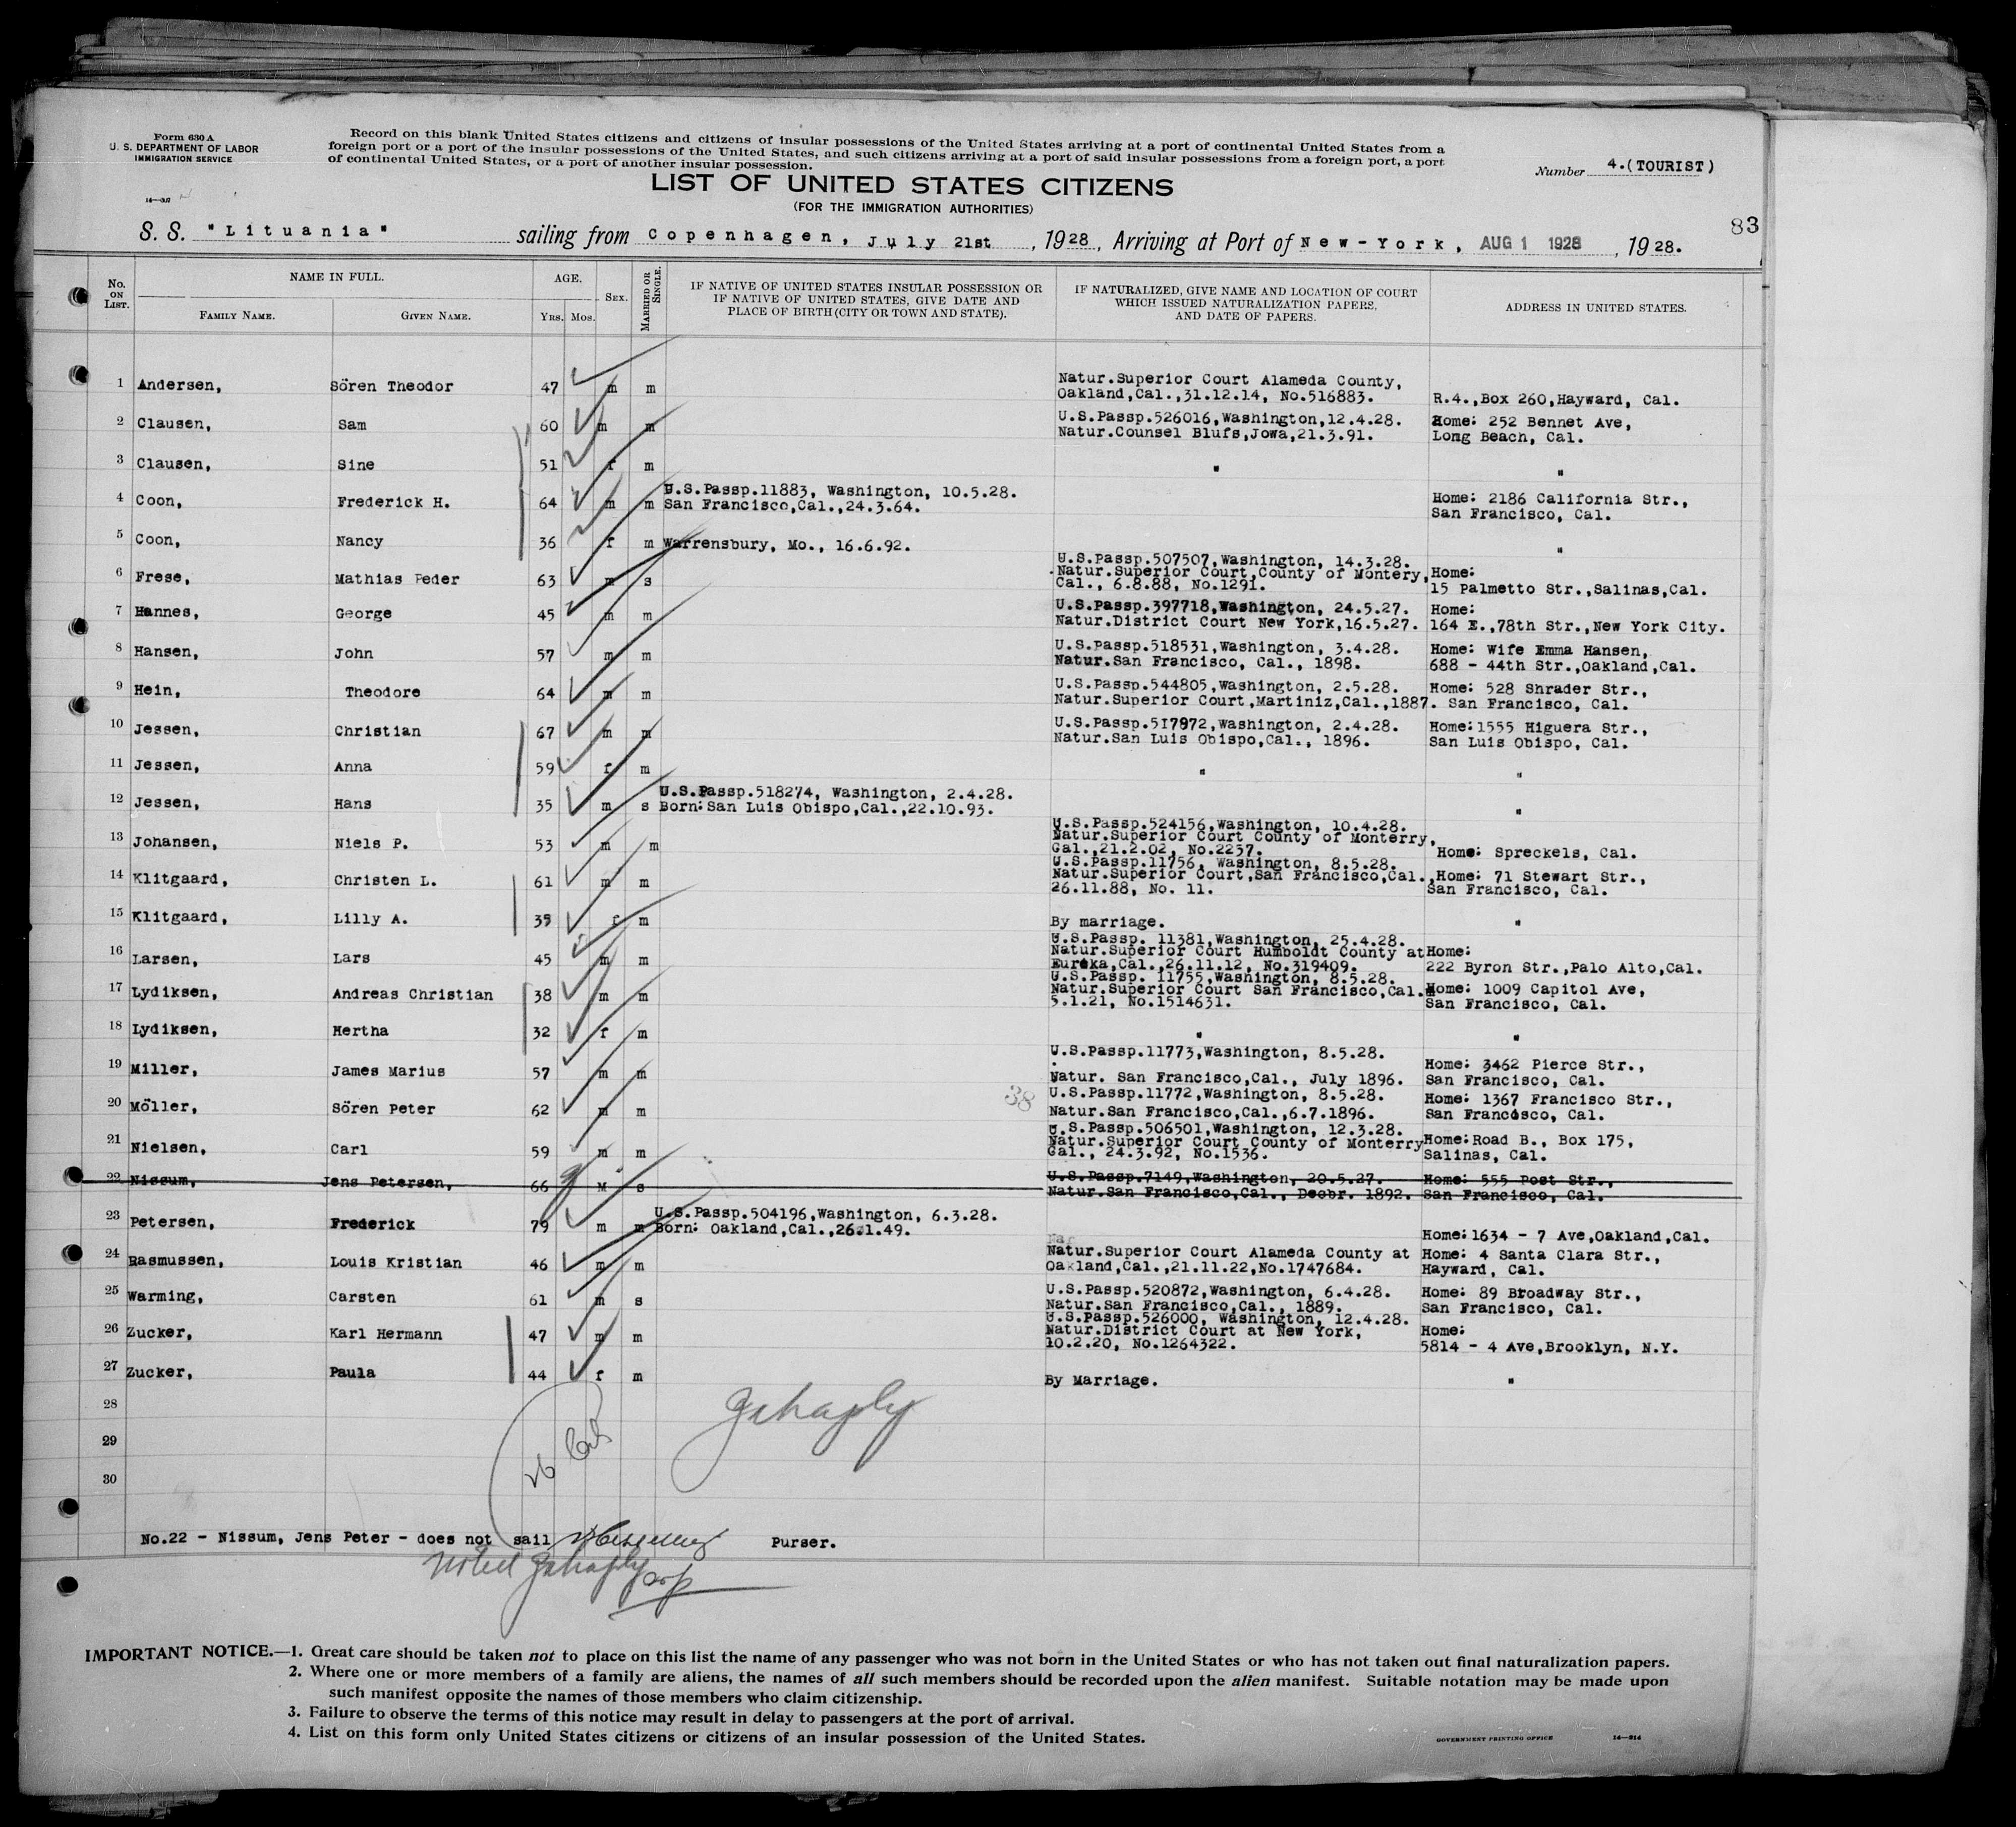 Form 630 A
U. S. DEPARTMENT OF LABOR
IMMIGRATION SERVICE
Record on this blank United States citizens and citizens of insular possessions of the United States arriving at a port of continental United States from a
foreign port or a port of the insular possessions of the United States, and such citizens arriving at a port of said insular possessions from a foreign port, a port
of continental United States, or a port of another insular possession.
Number 4.(TOURIST)
LIST OF UNITED STATES CITIZENS
(FOR THE IMMIGRATION AUTHORITIES)
83
S. S. "Lituania" sailing from Copenhagen, July 21st, 1928, Arriving at Port of New-York, AUG 1 1928, 1928.
No. ON LIST. NAME IN FULL. FAMILY NAME. GIVEN NAME. AGE. YRS. MOS. SEX. MARRIED OR SINGLE. IF NATIVE OF UNITED STATES INSULAR POSSESSION OR IF NATIVE OF UNITED STATES, GIVE DATE AND PLACE OF BIRTH (CITY OR TOWN AND STATE). IF NATURALIZED, GIVE NAME AND LOCATION OF COURT WHICH ISSUED NATURALIZATION PAPERS, AND DATE OF PAPERS. ADDRESS IN UNITED STATES.
1 Andersen, Sören Theodor 47 m m Natur.Superior Court Alameda County,
Oakland,Cal.,31.12.14, No.516883. R.4.,Box 260,Hayward, Cal.
2 Clausen, Sam 60 m m U.S.Passp.526016,Washington,12.4.28. Home: 252 Bennet Ave,
Natur.Counsel Blufs,Jowa,21.3.91. Long Beach, Cal.
3 Clausen, Sine 51 f m " "
4 Coon, Frederick H. 64 m m U.S.Passp.11883, Washington, 10.5.28. Home: 2186 California Str.,
San Francisco,Cal.,24.3.64. San Francisco, Cal.
5 Coon, Nancy 36 f m Warrensbury, Mo., 16.6.92. "
6 Frese, Mathias Peder 63 m s U.S.Passp.507507,Washington, 14.3.28.
Natur.Superior Court,County of Montery, Home:
Cal., 6.8.88, No.1291. 15 Palmetto Str.,Salinas,Cal.
7 Hannes, George 45 m m U.S.Passp.397718,Washington, 24.5.27. Home:
Natur.District Court New York,16.5.27. 164 E.,78th Str.,New York City.
8 Hansen, John 57 m m U.S.Passp.518531,Washington, 3.4.28. Home: Wife Emma Hansen,
Natur.San Francisco, Cal., 1898. 688 - 44th Str.,Oakland,Cal.
9 Hein, Theodore 64 m m U.S.Passp.544805,Washington, 2.5.28. Home: 528 Shrader Str.,
Natur.Superior Court,Martiniz,Cal.,1887. San Francisco, Cal.
10 Jessen, Christian 67 m m U.S.Passp.517972,Washington, 2.4.28. Home:1555 Higuera Str.,
Natur.San Luis Obispo,Cal., 1896. San Luis Obispo, Cal.
11 Jessen, Anna 59 f m " "
12 Jessen, Hans 35 m s U.S.Passp.518274, Washington, 2.4.28.
Born:San Luis Obispo,Cal.,22.10.93. "
13 Johansen, Niels P. 53 m m U.S.Passp.524156,Washington, 10.4.28.
Natur.Superior Court County of Monterry,
Cal.,21.2.02, No.2257. Home: Spreckels, Cal.
14 Klitgaard, Christen L. 61 m m U.S.Passp.11756, Washington, 8.5.28.
Natur.Superior Court,San Francisco,Cal., Home: 71 Stewart Str.,
26.11.88, No. 11. San Francisco, Cal.
15 Klitgaard, Lilly A. 39 f m By marriage. "
16 Larsen, Lars 45 m m U.S.Passp. 11381,Washington, 25.4.28.
Natur.Superior Court Humboldt County at Home:
Eureka,Cal.,26.11.12, No.319409. 222 Byron Str.,Palo Alto,Cal.
17 Lydiksen, Andreas Christian 38 m m U.S.Passp. 11755,Washington, 8.5.28.
Natur.Superior Court San Francisco,Cal. Home: 1009 Capitol Ave,
5.1.21, No.1514631. San Francisco, Cal.
18 Lydiksen, Hertha 32 f m " "
19 Miller, James Marius 57 m m U.S.Passp.11773,Washington, 8.5.28. Home: 3462 Pierce Str.,
Natur. San Francisco,Cal., July 1896. San Francisco, Cal.
38
20 Möller, Sören Peter 62 m m U.S.Passp.11772,Washington, 8.5.28. Home: 1367 Francisco Str.,
Natur.San Francisco,Cal.,6.7.1896. San Francosco, Cal.
21 Nielsen, Carl 59 m m U.S.Passp.506501,Washington, 12.3.28.
Natur.Superior Court County of Monterry Home:Road B., Box 175,
Cal., 24.3.92, No.1536. Salinas, Cal.
22 Nissum, Jens Petersen, 66 M s U.S.Passp.7149,Washington, 20.5.27. Home: 555 Post Str.,
Natur.San Francisco,Cal., Decbr. 1892. San Francisco, Cal.
23 Petersen, Frederick 79 m m U.S.Passp.504196,Washington, 6.3.28.
Born: Oakland,Cal.,26.1.49. Home:1634 - 7 Ave,Oakland,Cal.
24 Rasmussen, Louis Kristian 46 m m Natur.Superior Court Alameda County at Home: 4 Santa Clara Str.,
Oakland,Cal.,21.11.22,No.1747684. Hayward, Cal.
25 Warming, Carsten 61 m s U.S.Passp.520872,Washington, 6.4.28. Home: 89 Broadway Str.,
Natur.San Francisco,Cal., 1889. San Francisco, Cal.
26 Zucker, Karl Hermann 47 m m U.S.Passp.526000, Washington, 12.4.28.
Natur.District Court at New York, Home:
10.2.20, No.1264322. 5814 - 4 Ave,Brooklyn, N.Y.
27 Zucker, Paula 44 f m By Marriage. "
28
29
30
26
No.22 - Nissum, Jens Peter - does not sail Purser.
Noted
IMPORTANT NOTICE.—1. Great care should be taken not to place on this list the name of any passenger who was not born in the United States or who has not taken out final naturalization papers.
2. Where one or more members of a family are aliens, the names of all such members should be recorded upon the alien manifest. Suitable notation may be made upon
such manifest opposite the names of those members who claim citizenship.
3. Failure to observe the terms of this notice may result in delay to passengers at the port of arrival.
4. List on this form only United States citizens or citizens of an insular possession of the United States.
GOVERNMENT PRINTING OFFICE 14—314